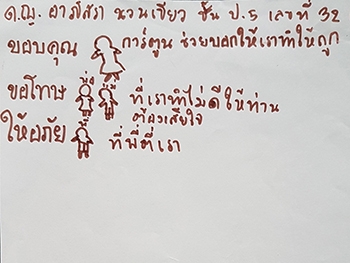 ด.ญ. อารีสรา นวนเขียว ชั้น ป.5 เลขที่ 32
ขอบคุณ การ์ตูน ช่วยบอกให้เราทำให้ถูก
ขอโทษ พ่อ แม่ ที่เราทำไม่ดีให้ท่าน
ต้องเสียใจ
ให้อภัย พี่ ที่พี่ตีเรา